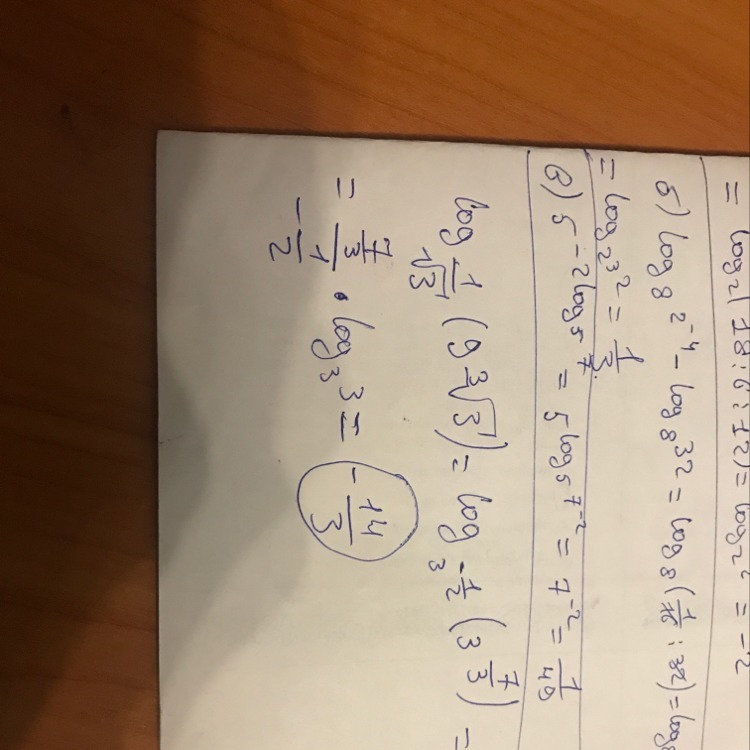 = log₂(18:6:12) = log₂ = -2
б) log₈ 2⁻⁴ - log₈ 32 = log₈(1/16 : 32) = log₈
= log₂³ 2 = 1/3.
в) 5^(-2log₅7) = 5^(log₅7⁻²) = 7⁻² = 1/49
log_(1/√3) (9 ∛3) = log_(3^(-1/2)) (3^(7/3)) =
= (7/3)/(-1/2) · log₃ 3 = -14/3